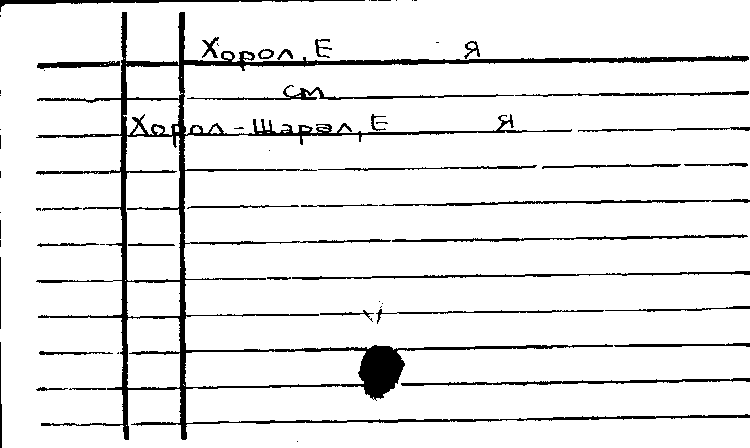 Хорол, Е Я
см
Хорол-Шарал, Е Я